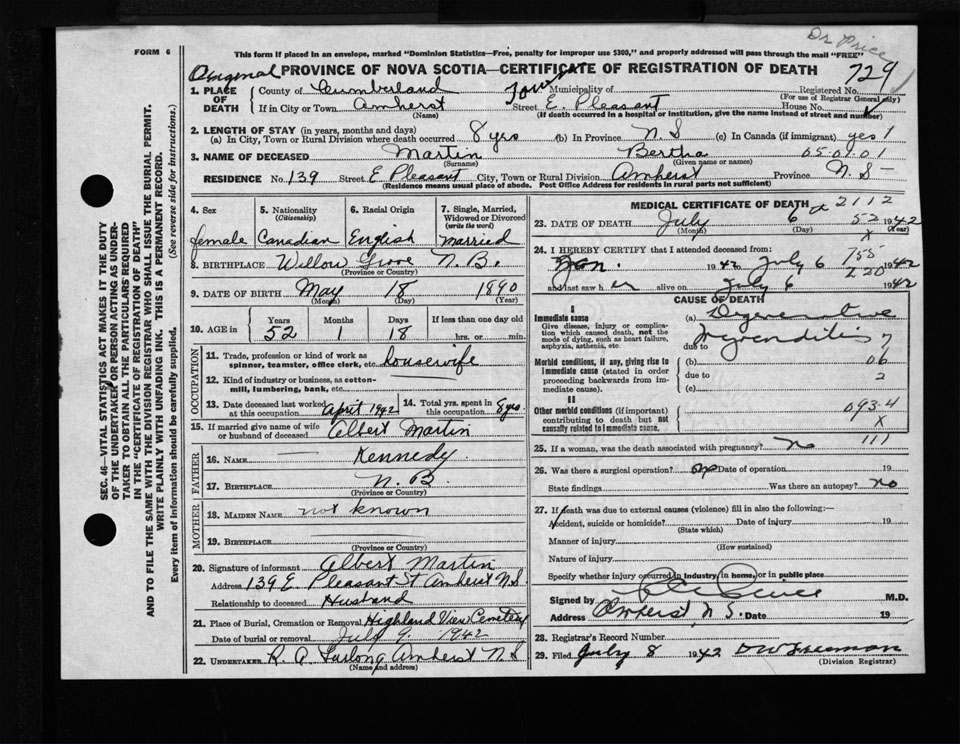 Dr Price
FORM 6
This form if placed in an envelope, marked "Dominion Statistics—Free, penalty for improper use $300," and properly addressed will pass through the mail "FREE"
Original PROVINCE OF NOVA SCOTIA—CERTIFICATE OF REGISTRATION OF DEATH 729
1. PLACE OF DEATH County of Cumberland Town Municipality of Registered No.
(For use of Registrar General only)
If in City or Town Amherst Street E. Pleasant House No.
(Name) (If death occurred in a hospital or institution, give the name instead of street and number)
2. LENGTH OF STAY (in years, months and days)
(a) In City, Town or Rural Division where death occurred 8 yrs (b) In Province N.S (c) In Canada (if immigrant) yes 1
3. NAME OF DECEASED Martin Bertha 05-01-01
(Surname) (Given name or names)
RESIDENCE No. 139 Street E Pleasant City, Town or Rural Division Amherst Province N.S-
(Residence means usual place of abode. Post Office Address for residents in rural parts not sufficient)
4. Sex
female
5. Nationality (Citizenship)
Canadian
6. Racial Origin
English
7. Single, Married, Widowed or Divorced (write the word)
Married
8. BIRTHPLACE Willow Grove N.B.
(Province or Country)
9. DATE OF BIRTH May 18 1890
(Month) (Day) (Year)
10. AGE in Years Months Days If less than one day old
52 1 18 hrs. or min.
OCCUPATION
11. Trade, profession or kind of work as spinner, teamster, office clerk, etc. housewife
12. Kind of industry or business, as cotton-mill, lumbering, bank, etc.
13. Date deceased last worked at this occupation April 1942 14. Total yrs. spent in this occupation 8 yrs.
15. If married give name of wife or husband of deceased Albert Martin
FATHER
16. NAME — Kennedy
17. BIRTHPLACE N.B.
(Province or Country)
MOTHER
18. MAIDEN NAME not known
19. BIRTHPLACE
(Province or Country)
20. Signature of informant Albert Martin
Address 139 E. Pleasant St Amherst NS
Relationship to deceased Husband
21. Place of Burial, Cremation or Removal Highland View Cemetery
Date of burial or removal July 9. 1942
22. UNDERTAKER R. A. Furlong Amherst N S
(Name and address)
MEDICAL CERTIFICATE OF DEATH 2112
23. DATE OF DEATH July 6 52 1942
(Month) (Day) (Year)
X
24. I HEREBY CERTIFY that I attended deceased from: 755
Jan. 1942 to July 6 220 1942
and last saw her alive on July 6 1942
CAUSE OF DEATH
I
Immediate cause (a) Degenerative
Give disease, injury or complication which caused death, not the mode of dying, such as heart failure, asphyxia, asthenia, etc.
due to 7
Morbid conditions, if any, giving rise to immediate cause (stated in order proceeding backwards from immediate cause).
(b) 06
due to 2
(c)
II
Other morbid conditions (if important) contributing to death but not causally related to immediate cause. 093.4
X
25. If a woman, was the death associated with pregnancy? No 111
26. Was there a surgical operation? no Date of operation 19
State findings Was there an autopsy? No
27. If death was due to external causes (violence) fill in also the following:—
Accident, suicide or homicide? Date of injury 19
(State which)
Manner of injury
(How sustained)
Nature of injury
Specify whether injury occurred in industry, in home, or in public place
Signed by M.D.
Address Amherst, N S. Date 19
28. Registrar's Record Number
29. Filed July 8 1942 D W Freeman
(Division Registrar)
SEC. 46—VITAL STATISTICS ACT MAKES IT THE DUTY
OF THE UNDERTAKER OR PERSON ACTING AS UNDER-
TAKER TO OBTAIN ALL THE PARTICULARS REQUIRED
IN THE "CERTIFICATE OF REGISTRATION OF DEATH"
AND TO FILE THE SAME WITH THE DIVISION REGISTRAR WHO SHALL ISSUE THE BURIAL PERMIT.
WRITE PLAINLY WITH UNFADING INK. THIS IS A PERMANENT RECORD.
Every item of information should be carefully supplied. (See reverse side for instructions.)